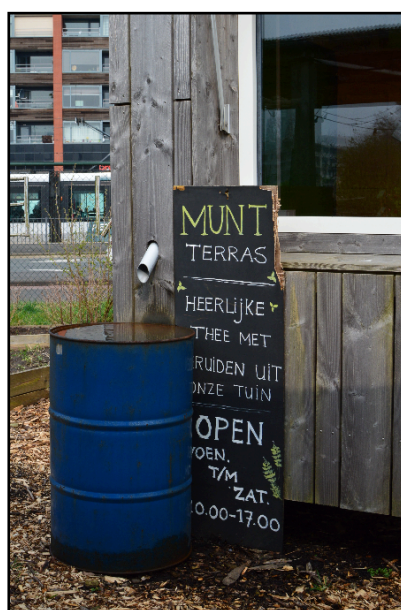 MUNT
TERRAS
HEERLIJKE
THEE MET
RUIDEN UIT
ONZE TUIN
OPEN
OEN.
T/M
ZAT.
0.00-17.00